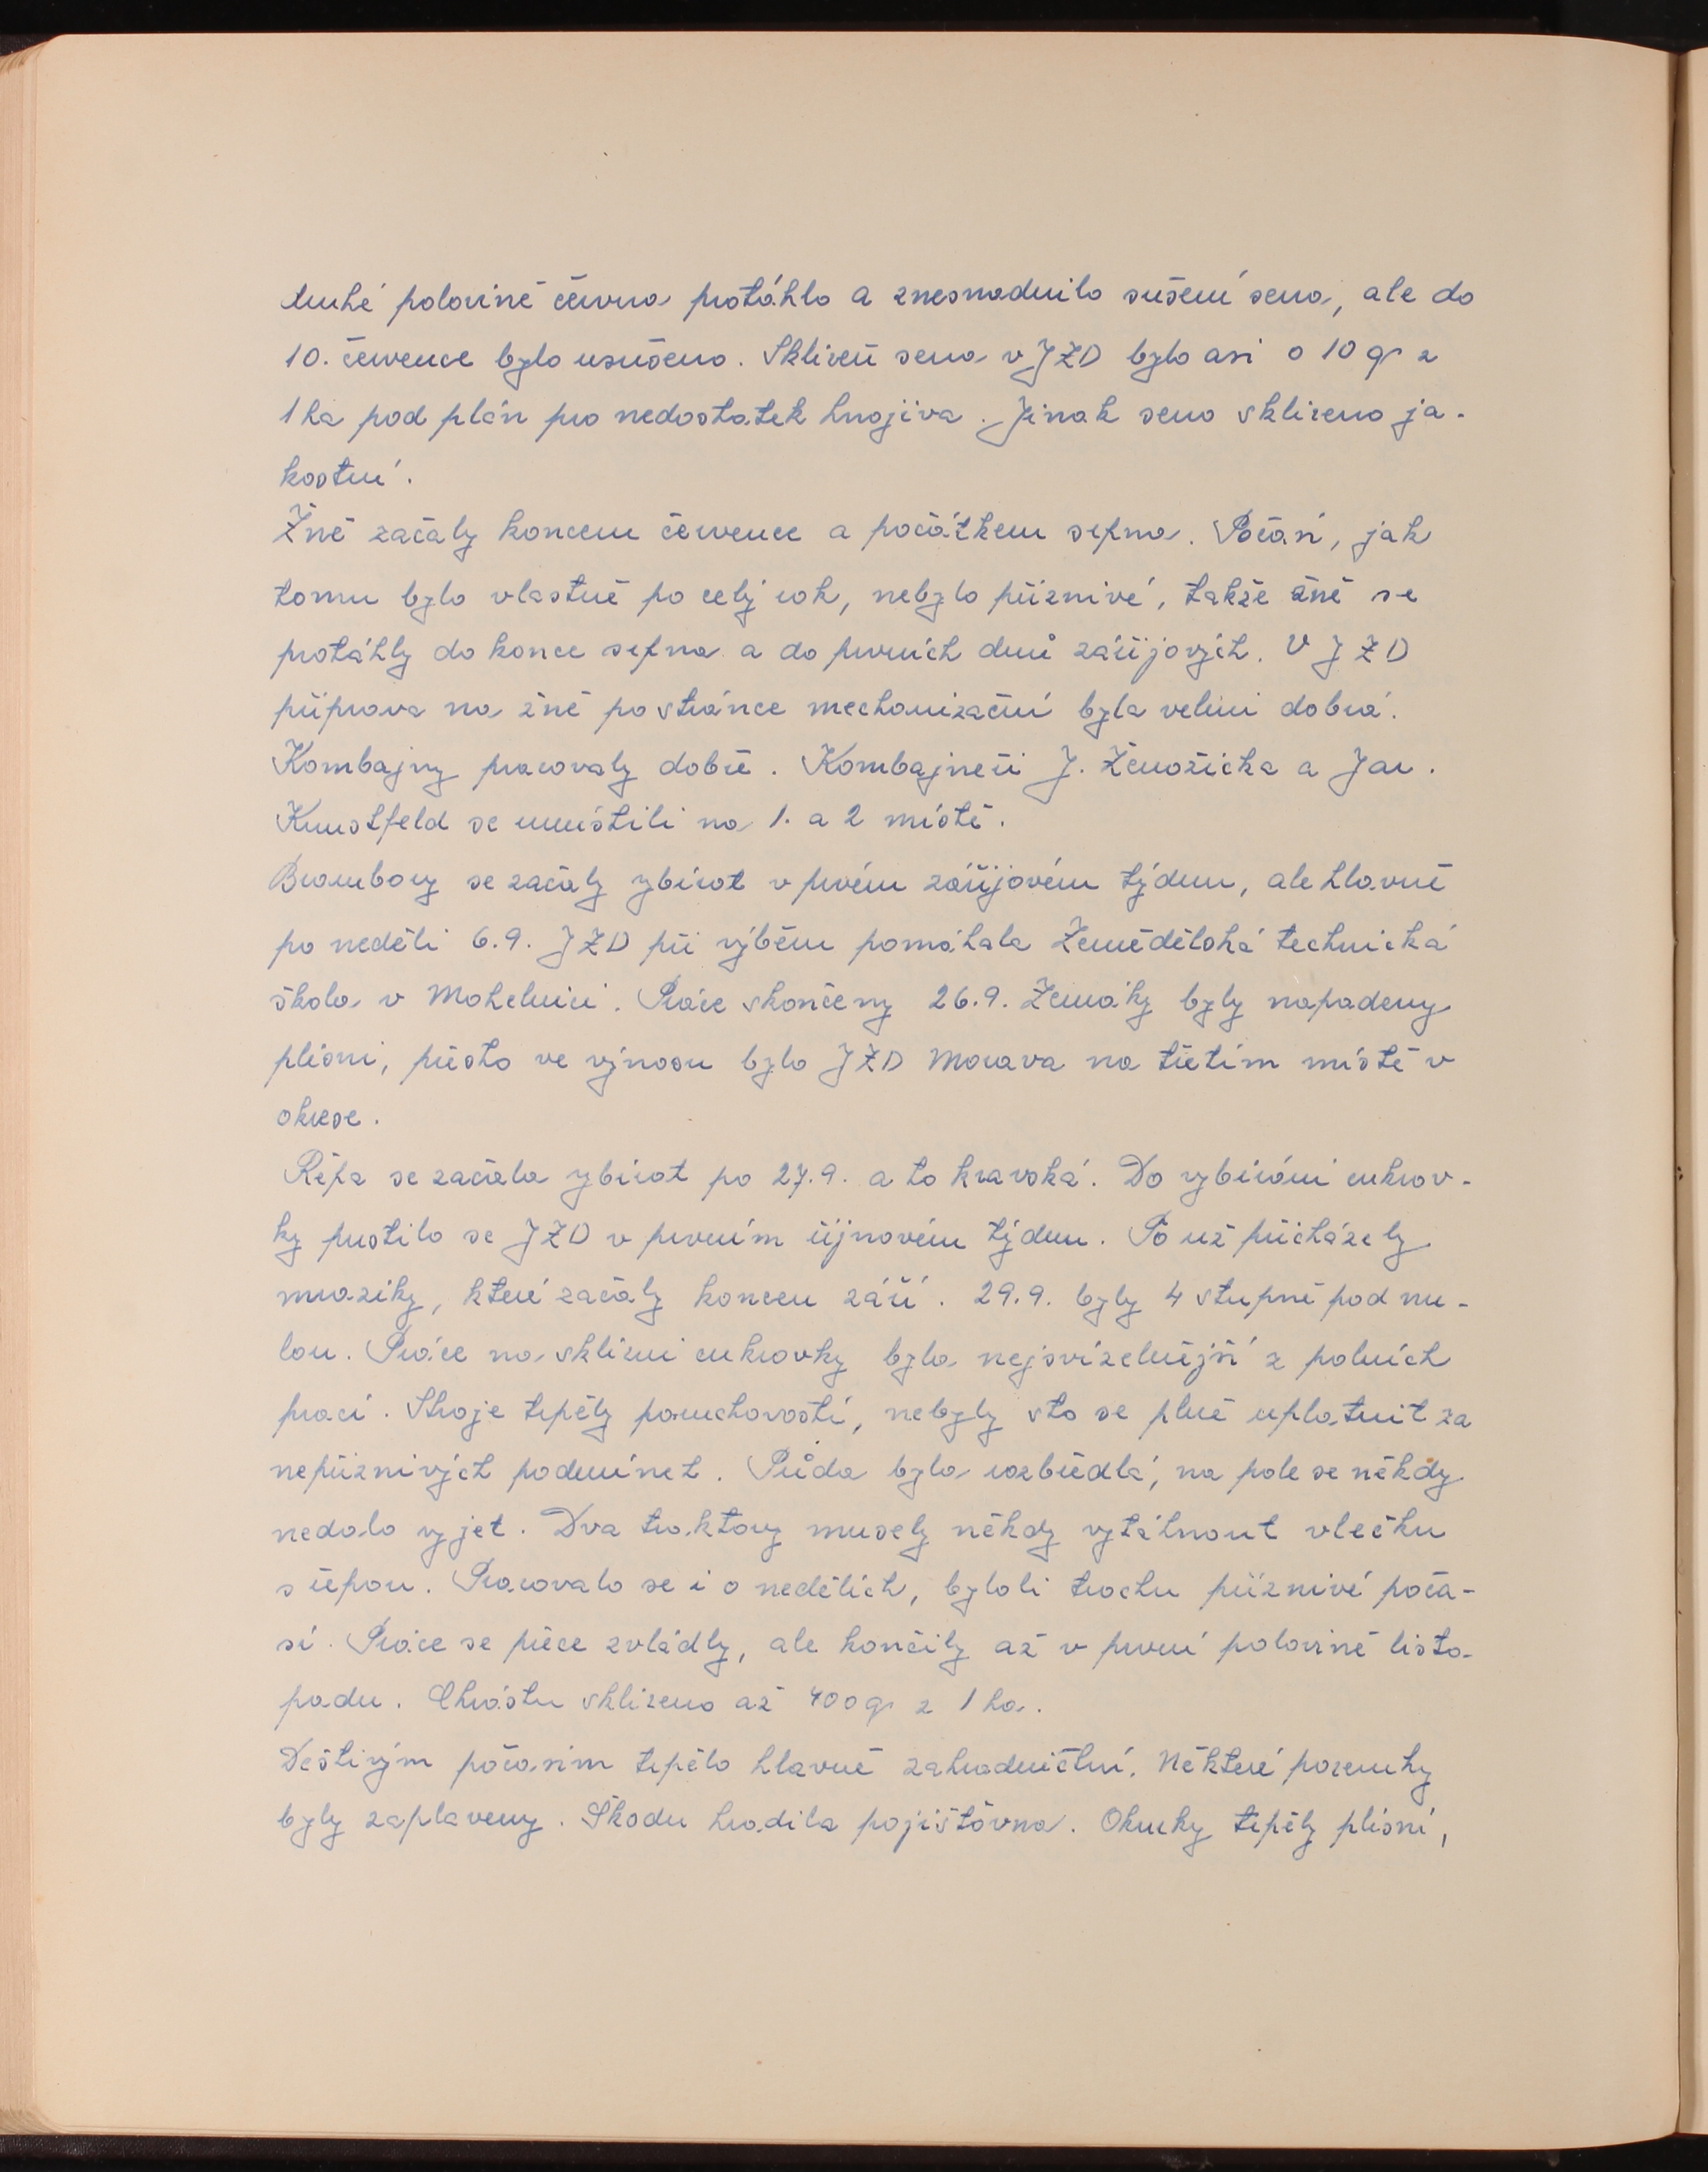 druhé polovině června protáhlo a znesnadnilo sušení sena, ale do
10. července bylo usušeno. Sklizeň sena v JZD bylo asi o 10 q z
1 ha pod plán pro nedostatek hnojiva. Jinak seno sklizeno ja-
kostní.
Žně začaly koncem července a počátkem srpna. Počasí, jak
tomu bylo vlastně po celý rok, nebylo příznivé, takže žně se
protáhly do konce srpna a do prvních dnů zářijových. V JZD
příprava na žně po stránce mechanizační byla velmi dobrá.
Kombajny pracovaly dobře. Kombajneři J. Ženožička a Jar.
Kunstfeld se umístili na 1. a 2 místě.
Brambory se začaly vybírat v prvém zářijovém týdnu, ale hlavně
po neděli 6.9. JZD při výběru pomáhala Zemědělská technická
škola v Mohelnici. Práce skončeny 26.9. Zemáky byly napadeny
plísní, přesto ve výnosu bylo JZD Morava na třetím místě v
okrese.
Řepa se začala vybírat po 27.9. a to kravská. Do vybírání cukrov-
ky pustilo se JZD v prvním říjnovém týdnu. To už přicházely
mrazíky, které začaly koncem září. 29.9. byly 4 stupně pod nu-
lou. Práce na sklizni cukrovky byla nejsvízelnější z polních
prací. Stroje trpěly poruchovostí, nebyly sto se plně uplatnit za
nepříznivých podmínek. Půda byla rozbředlá, na pole se někdy
nedalo vyjet. Dva traktory musely někdy vytáhnout vlečku
s řepou. Pracovalo se i o nedělích, byloli trochu příznivé poča-
sí. Práce se přece zvládly, ale končily až v první polovině listo-
padu. Chrástu sklizeno až 400 q z 1 ha.
Deštivým počasím trpělo hlavně zahradnictví. Některé pozemky
byly zaplaveny. Škodu hradila pojišťovna. Okurky trpěly plísní,